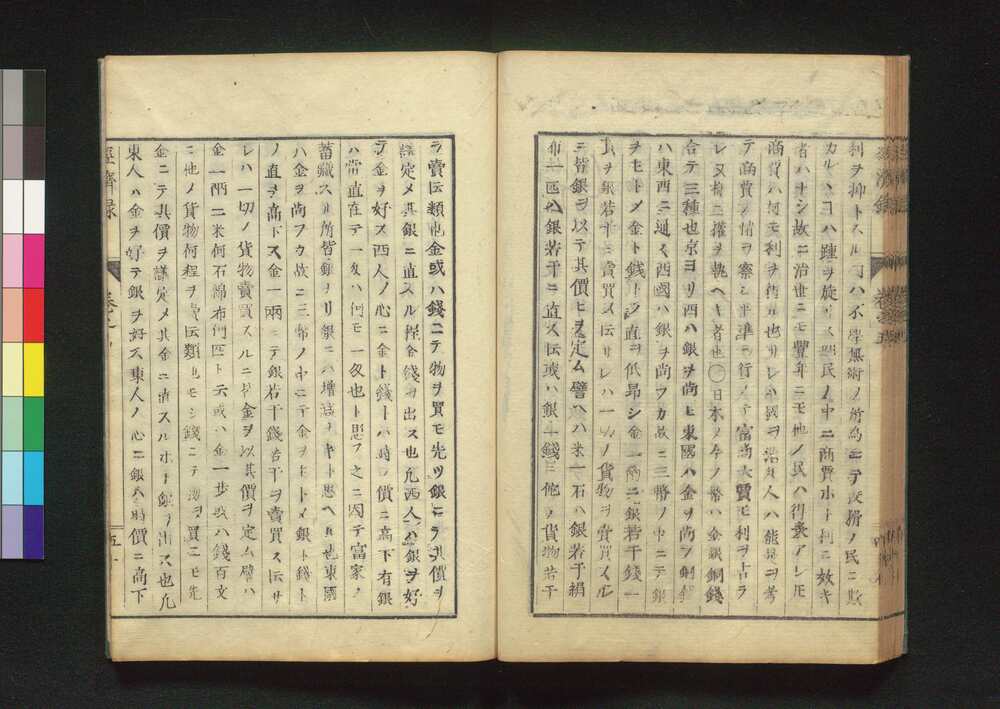 利ヲ抑トスル丨ハ不學無術ノ所為ニテ姦猾ノ民ニ欺
カルヽコハ踵ヲ旋ラス四民ノ中ニ商賈ホト利ニ敏キ
者ハナシ故ニ治世ニモ豐年ニモ他ノ民ハ得喪アレ圧
商賈ハ何モ利ヲ得ル也サレハ國ヲ治ル人ハ能是ヲ考
テ商賈ノ情ヲ察シ平準ヲ行ノテ富商大賈モ利ヲ占ラ
レヌ樣ニ權ヲ執ヘキ者也〇日本ノ今ノ幣ハ金銀銅錢
合テ三種也京ヨリ西ハ銀ヲ尚ヒ東國ハ金ヲ尚フ銅錢
ハ東西ニ通ス西國ハ銀ヲ尚フカ故ニ三幣ノ中ニテ銀
ヲモトメ金ト錢トノ直ヲ低昂シ金一兩ニ銀若干錢一
貫ヲ銀若干ニ賣買ス云サレハ一切ノ貨物ヲ賣買スル
ニ皆銀ヲ以テ其價ヒヲ定ム譬ヘハ米一石ハ銀若干絹
布一匹ハ銀若干ニ直ス云或ハ銀一錢ニ他ノ貨物若干
ヲ賣云類也金或ハ錢ニテ物ヲ買モ先ツ銀ニテ其價ヲ
議定メ其銀ニ直スル程金錢ヲ出ス也凡西人ハ銀ヲ好
テ金ヲ好ス西人ノ心ニ金ト錢トハ時ノ價ニ高下有銀
ハ常直在テ一匁ハ何モ一匁也ト思フ之ニ因テ富家ノ
蓄藏スル所皆銀ナリ銀ニハ增減ナキト思ヘハ也東國
ハ金ヲ尚フカ故ニ三幣ノ中ニテ金ヲモトメ銀ト錢ト
ノ直ヲ高下ス金一兩ニテ銀若干錢若干ヲ賣買ス云サ
レハ一切ノ貨物賣買スルニ皆金ヲ以其價ヲ定ム譬ハ
金一兩ニ米何石綿布何匹ト云或ハ金一步或ハ錢百文
ニ他ノ貨物何程ヲ賣云類也モシ錢ニテ物ヲ買ニモ先
金ニテ其價ヲ議定メ其金ニ直スルホト銀ヲ出ス也凡
東人ハ金ヲ好テ銀ヲ好ス東人ノ心ニ銀ハ時價ニ高下
經濟録
卷之五
五